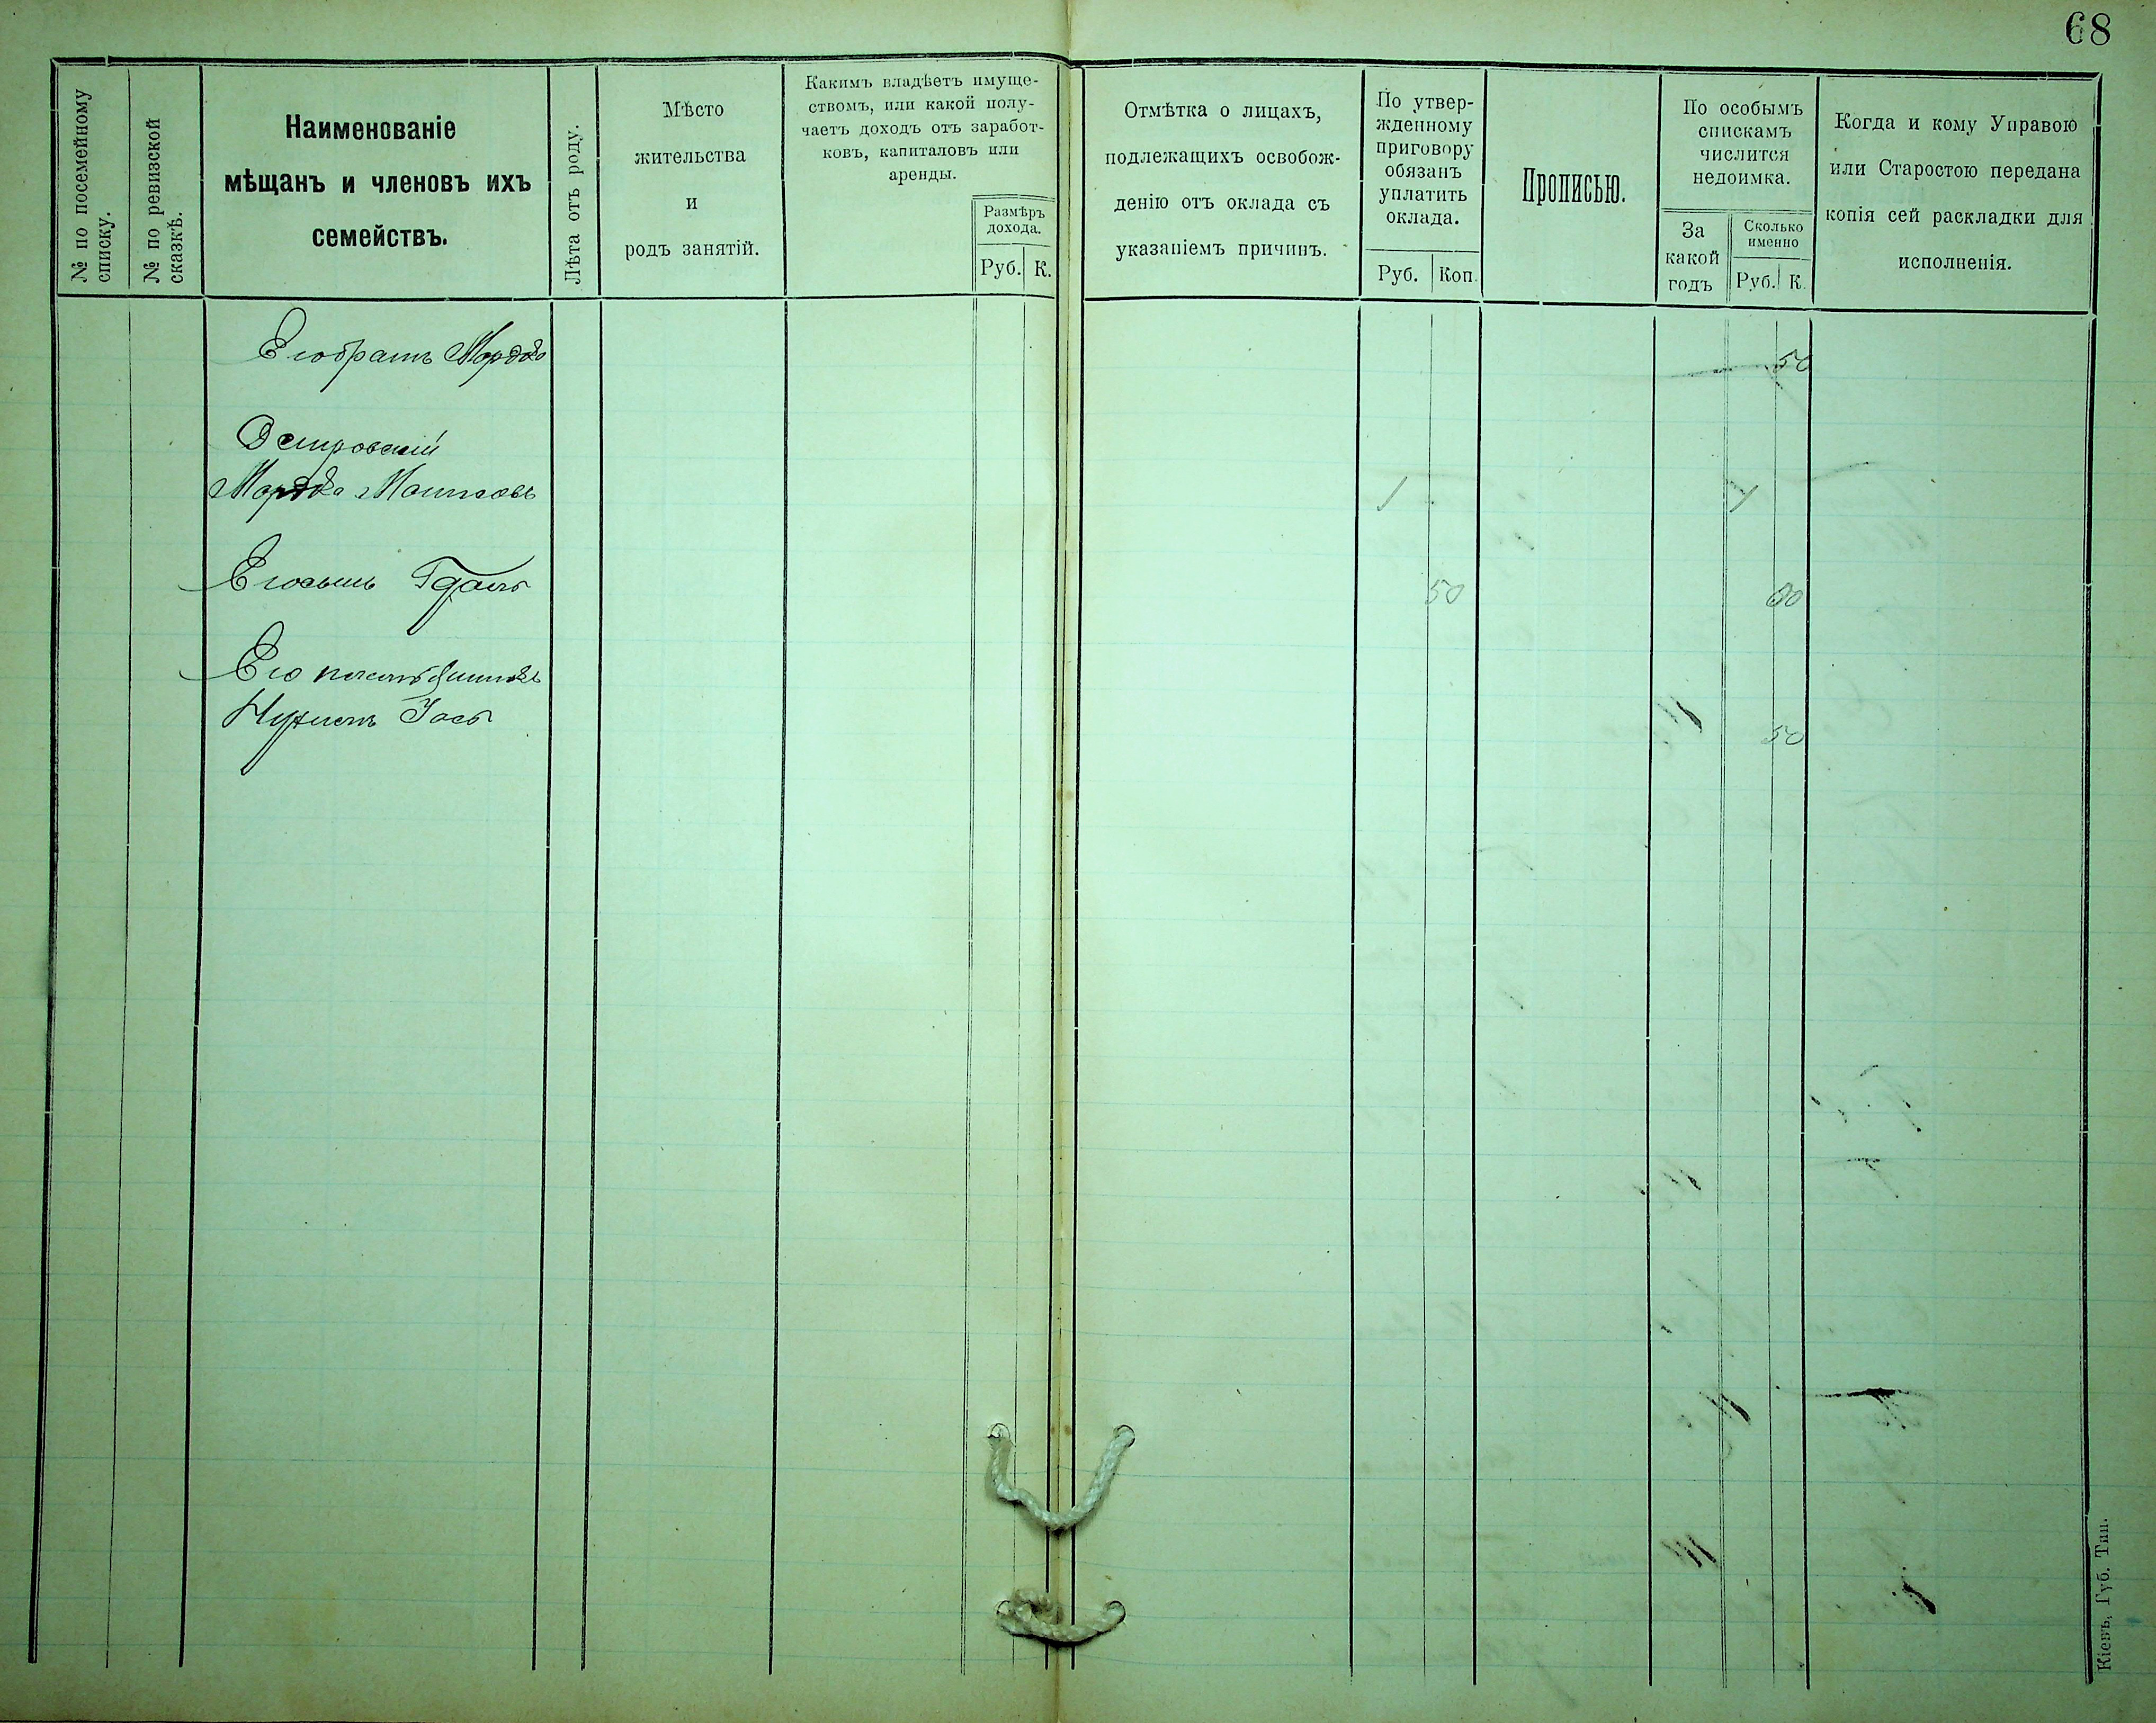 68
№ по посемейному
списку.
№ по ревизской
сказкѣ.
Наименованіе
мѣщанъ и членовъ ихъ
семействъ.
Лѣта отъ роду.
Мѣсто
жительства
и
родъ занятій.
Какимъ владѣетъ имуще-
ствомъ, или какой полу-
чаетъ доходъ отъ заработ-
ковъ, капиталовъ или
аренды.
Размѣръ
дохода.
Руб. К.
Отмѣтка о лицахъ,
подлежащихъ освобож-
денію отъ оклада съ
указаніемъ причинъ.
По утвер-
жденному
приговору
обязанъ
уплатить
оклада.
Руб. Коп.
Прописью.
По особымъ
спискамъ
числится
недоимка.
За
какой
годъ
Сколько
именно
Руб. К.
Когда и кому Управою
или Старостою передана
копія сей раскладки для
исполненія.
Его братъ Мордко 50
Островскій
Мордко Мошковъ 1
Его сынъ 50
Его
50
Кіевъ, Губ. Тип.